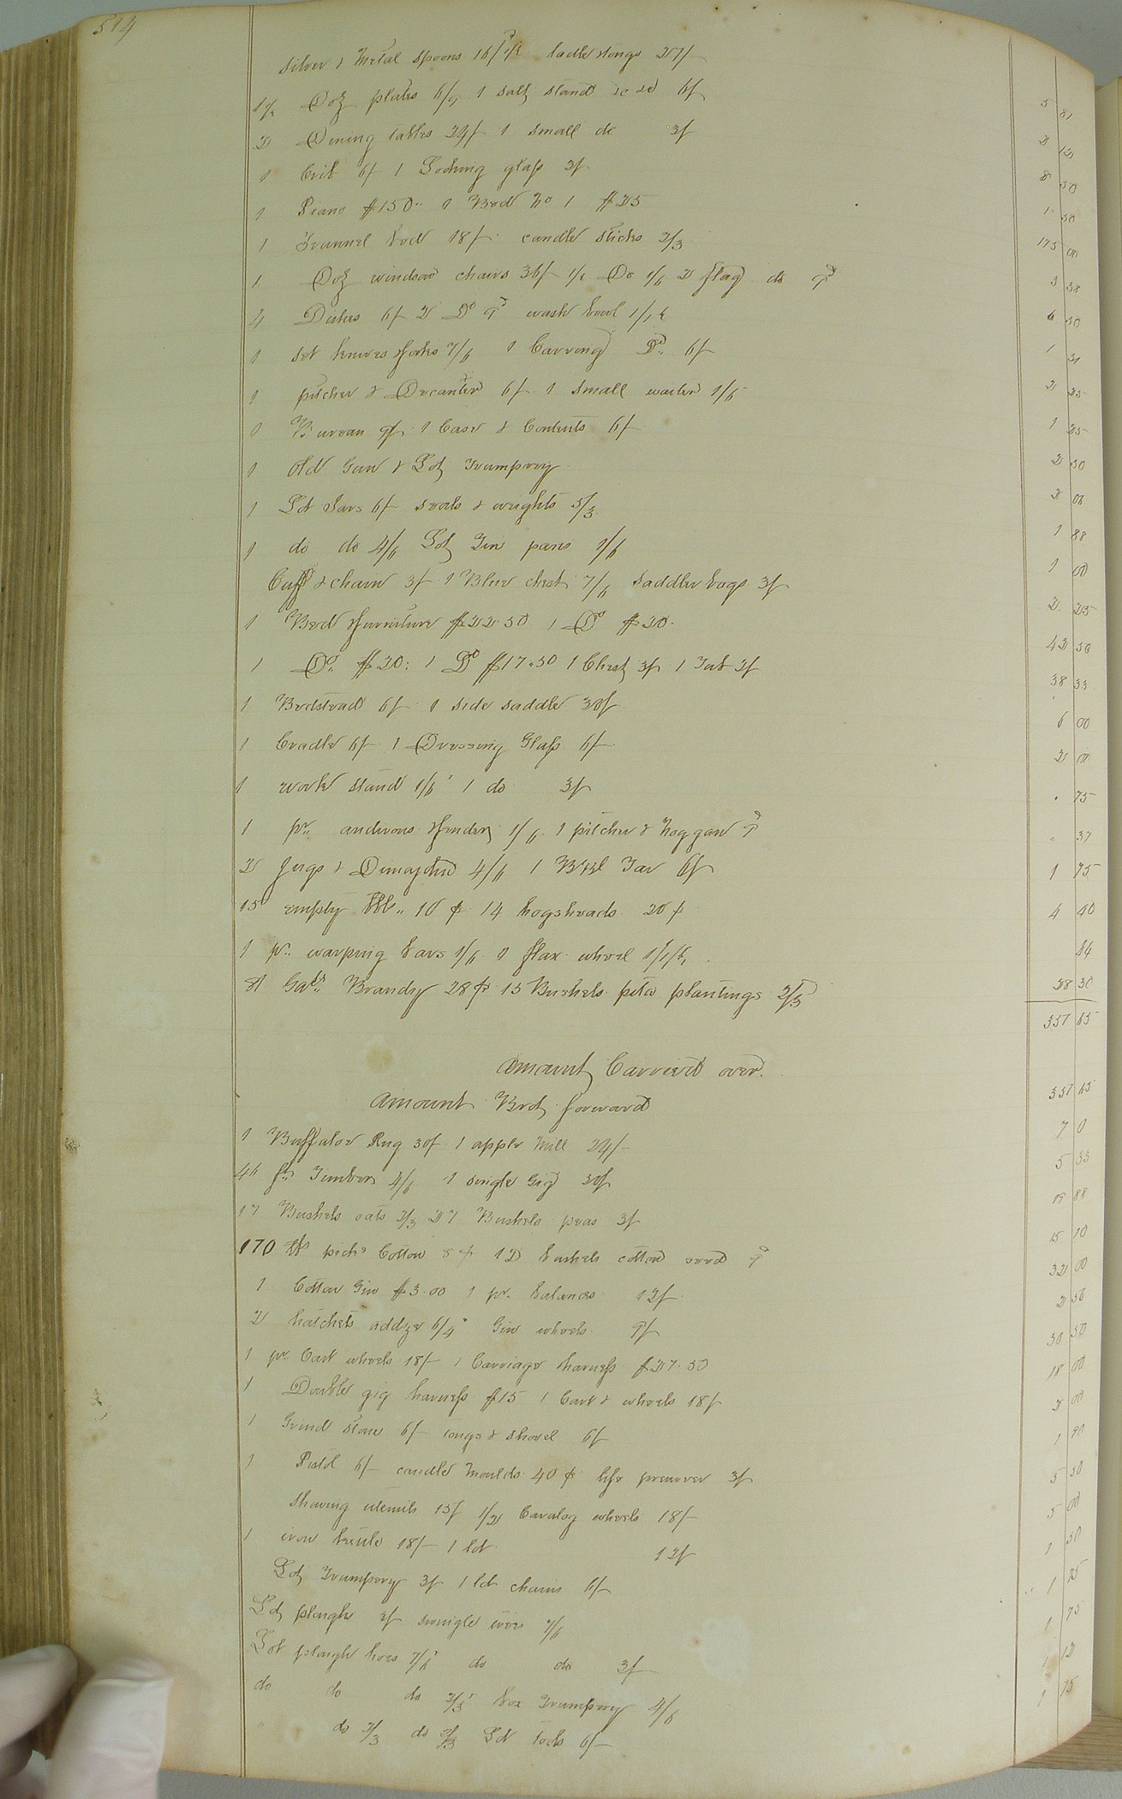 514
silver & Metal spoons 16/ ladle tongs 27/
1½ Doz plates 6/9 1 salt stand &c &c 6/ 5 81
2 Dining tables 24/ 1 small do 3/ 2 12
1 Crib 6/ 1 Looking glass 3/ 8 50
1 Piano $150.. 1 Bed No 1 $25 1 50
1 Trunnel bed 18/ candle sticks 2/3 175 00
1 Doz windsor chairs 36/ 1/2 Do 1/6 2 flag do 9d 3 38
4 Dishes 6/ 2 Do 9d wash bowl 1/1½ 6 50
1 set knives & forks 7/6 1 Carving Do.. 6/ 1 31
1 pitcher & Decanter 6/ 1 small waiter 1/6 2 25
1 Bureau 9/ 1 Case & Contents 6/ 1 25
1 old Gun & Lot Trumpery 2 50
1 Lot Jars 6/ scales & weights 5/3 2 00
1 do do 4/6 Lot Tin pans 1/6 1 88
Cuff & chain 3/ 1 Blue chest 7/6 saddle bags 3/ 1 00
1 Bed & furniture $22.50 1 Do $20. 2. 25
1 Do.. $20: 1 Do $17.50 1 Chest 3/ 1 Tub 2/ 42 50
1 Bedstead 6/ 1 side saddle 30/ 38 33
1 Cradle 6/ 1 Dressing Glass 6/ 6 00
1 work stand 1/6 1 do 3/ 2 00
1 pr. andirons & fender 1/6 1 pitcher & noggan 9d . 75
2 jugs & Demajohn 4/6 1 Bbl Tar 6/ . 37
15 empty bbls.. 10¢ 14 hogsheads 20¢ 1 75
1 pr.. warping bars 1/6 1 flax wheel 4 40
Galls.. Brandy 28¢ 15 Bushels peta plantings 2/3 84
38 30
357 65
Amount Carried over. 357 65
Amount Brot forward
1 Buffaloe Rug 30/ 1 apple mill 24/ 7 0
ft Timber 4/6 1 single Gig 30/ 5 33
17 Bushels oats 2/3 27 Bushels peas 3/
170 lbs pickd Cotton 12 bushels cotton seed 9d 15 10
1 Cotton Gin $3.00 1 pr. balances 12/ 32 00
2 hatchets addze 6/9 Gin wheels 9/ 2 50
1 pr Cart wheels 18/ 1 Carriage harness $27.50 30 50
1 Double gig harness $15 1 Cart & wheels 18/ 18 00
1 Grind stone 6/ tongs & shovel 6/ 2 00
1 Pistol 6/ candle moulds 40¢ life preserver 3/ 1 90
Shaving utensils 15/ 1/2 wheels 18/ 5 50
1 iron kettle 18/ 1 lot 12/ 5 00
Lot Trumpery 3/ 1 lot chains 6/ 1 50
Lot ploughs 2/ swingle irons 7/6 1 25
Lot plough hoes 7/6 do do 3/ 75
do do do 2/3 box Trumpery 4/6 12
do 2/3 do 2/3 Lot tools 6/ 75